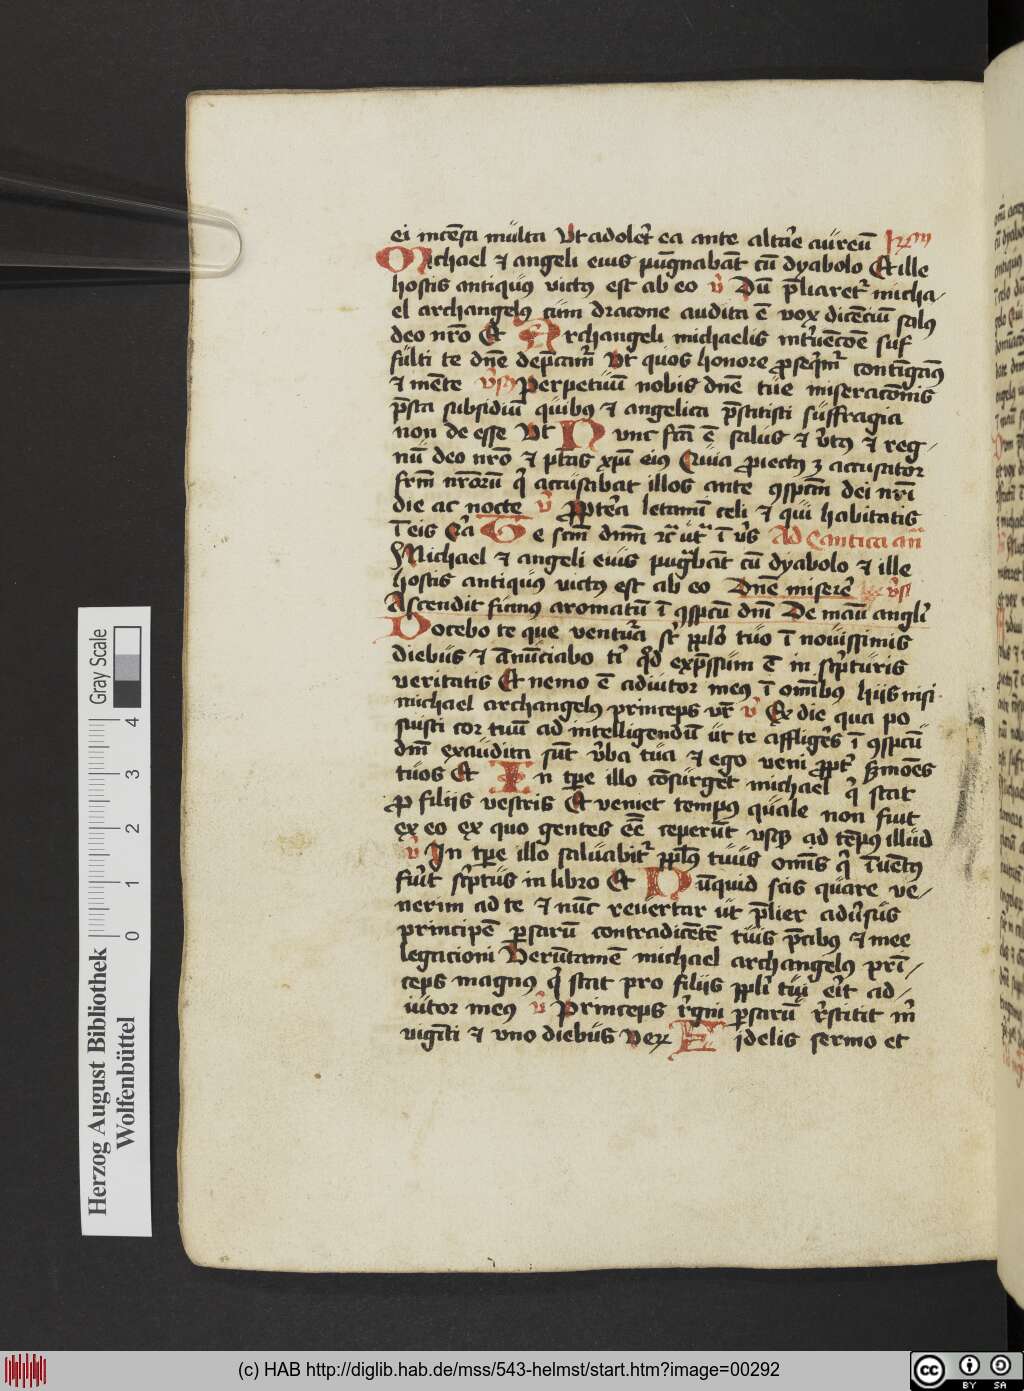 ei incēsa multa Vt adoler̄t ea ante altar̄e aureū
Michael ⁊ angeli eius pugnabāt cū dyabolo Et ille
hostis antiquus victus est ab eo v̄ Dū p̄liaretr̄ micha/
el archangelus cum dracone audita ē vox dicēciū salus
deo nr̄o Et Archangeli michaelis int̄uēcōe suf
fulti te dn̄e dep̄cam̄ Vt quos honore ꝓseqm̄r contīgam̄us
⁊ mēte Perpetuū nobis dn̄e tue miseracōnis
p̄sta subsidiū quibus ⁊ angelica p̄stitisti suffragia
non de esse Vt Nunc fc̄a ē salus ⁊ v̄tus ⁊ reg/
nū deo nr̄o ⁊ ptās xp̄i eius Quia ꝓiectus ⁊ accusator
fr̄m nr̄orū q̄ accusabat illos ante ꝯspcm̄ dei nr̄i
die ac nocte v̄ ꝓpter̄a letamī celi ⁊ qui habitatis
ī eis Te scm̄ dnm̄ Ad Cantica añ
Michael ⁊ angeli eius pugbāt cū dyabolo ⁊ ille
hostis antiquus victus est ab eo Dn̄e miserēr
Ascendit fumus aromatū ī ꝯspcū dn̄i De manū angli
Docebo te que ventur̄a st̄ pplo tuo ī nouissimis
diebus ⁊ anūciabo ti qd̄ exp̄ssum ē in sc̄pturis
veritatis Et nemo ē adiutor meus ī om̄ibus hiis nisi
michael archangelus princeps vr̄ v̄ Ex die qua po
suisti cor tuū ad intelligendū ut te affliger̄s ī ꝯspcū
dn̄i exaudita sūt v̄ba tua ⁊ ego veni ꝓpt̄ s̄mōēs
tuos Et In tp̄e illo cōsurget michael q̄ stat
ꝓ filiis vestris Et veniet tempus quale non fiut
ex eo ex quo gentes ēē ceperūt vsqꝫ ad tēpus illud
v̄ In tp̄e illo saluabitr̄ ppls̄ tuus om̄is q̄ īuētus
fu̅it sc̄ptus in libro Et Nūquid scis quare ve/
nerim ad te ⁊ nūc reuertar ut p̄lier adūsus
principē p̄sarū contradicētē tuis p̄cibus ⁊ mee
legacioni Verūtamē michael archangelus prī/
ceps magnus q̄ stat pro filiis ppli tui er̄it ad/
iutor meus v̄ Princeps r̄gni p̄sarū r̄stitit m̄
vigīti ⁊ vno diebus Fidelis sermo et
Gray Scale
0 1 2 3 4
Herzog August Bibliothek
Wolfenbüttel
(c) HAB http://diglib.hab.de/mss/543-helmst/start.htm?image=00292
CC BY SA